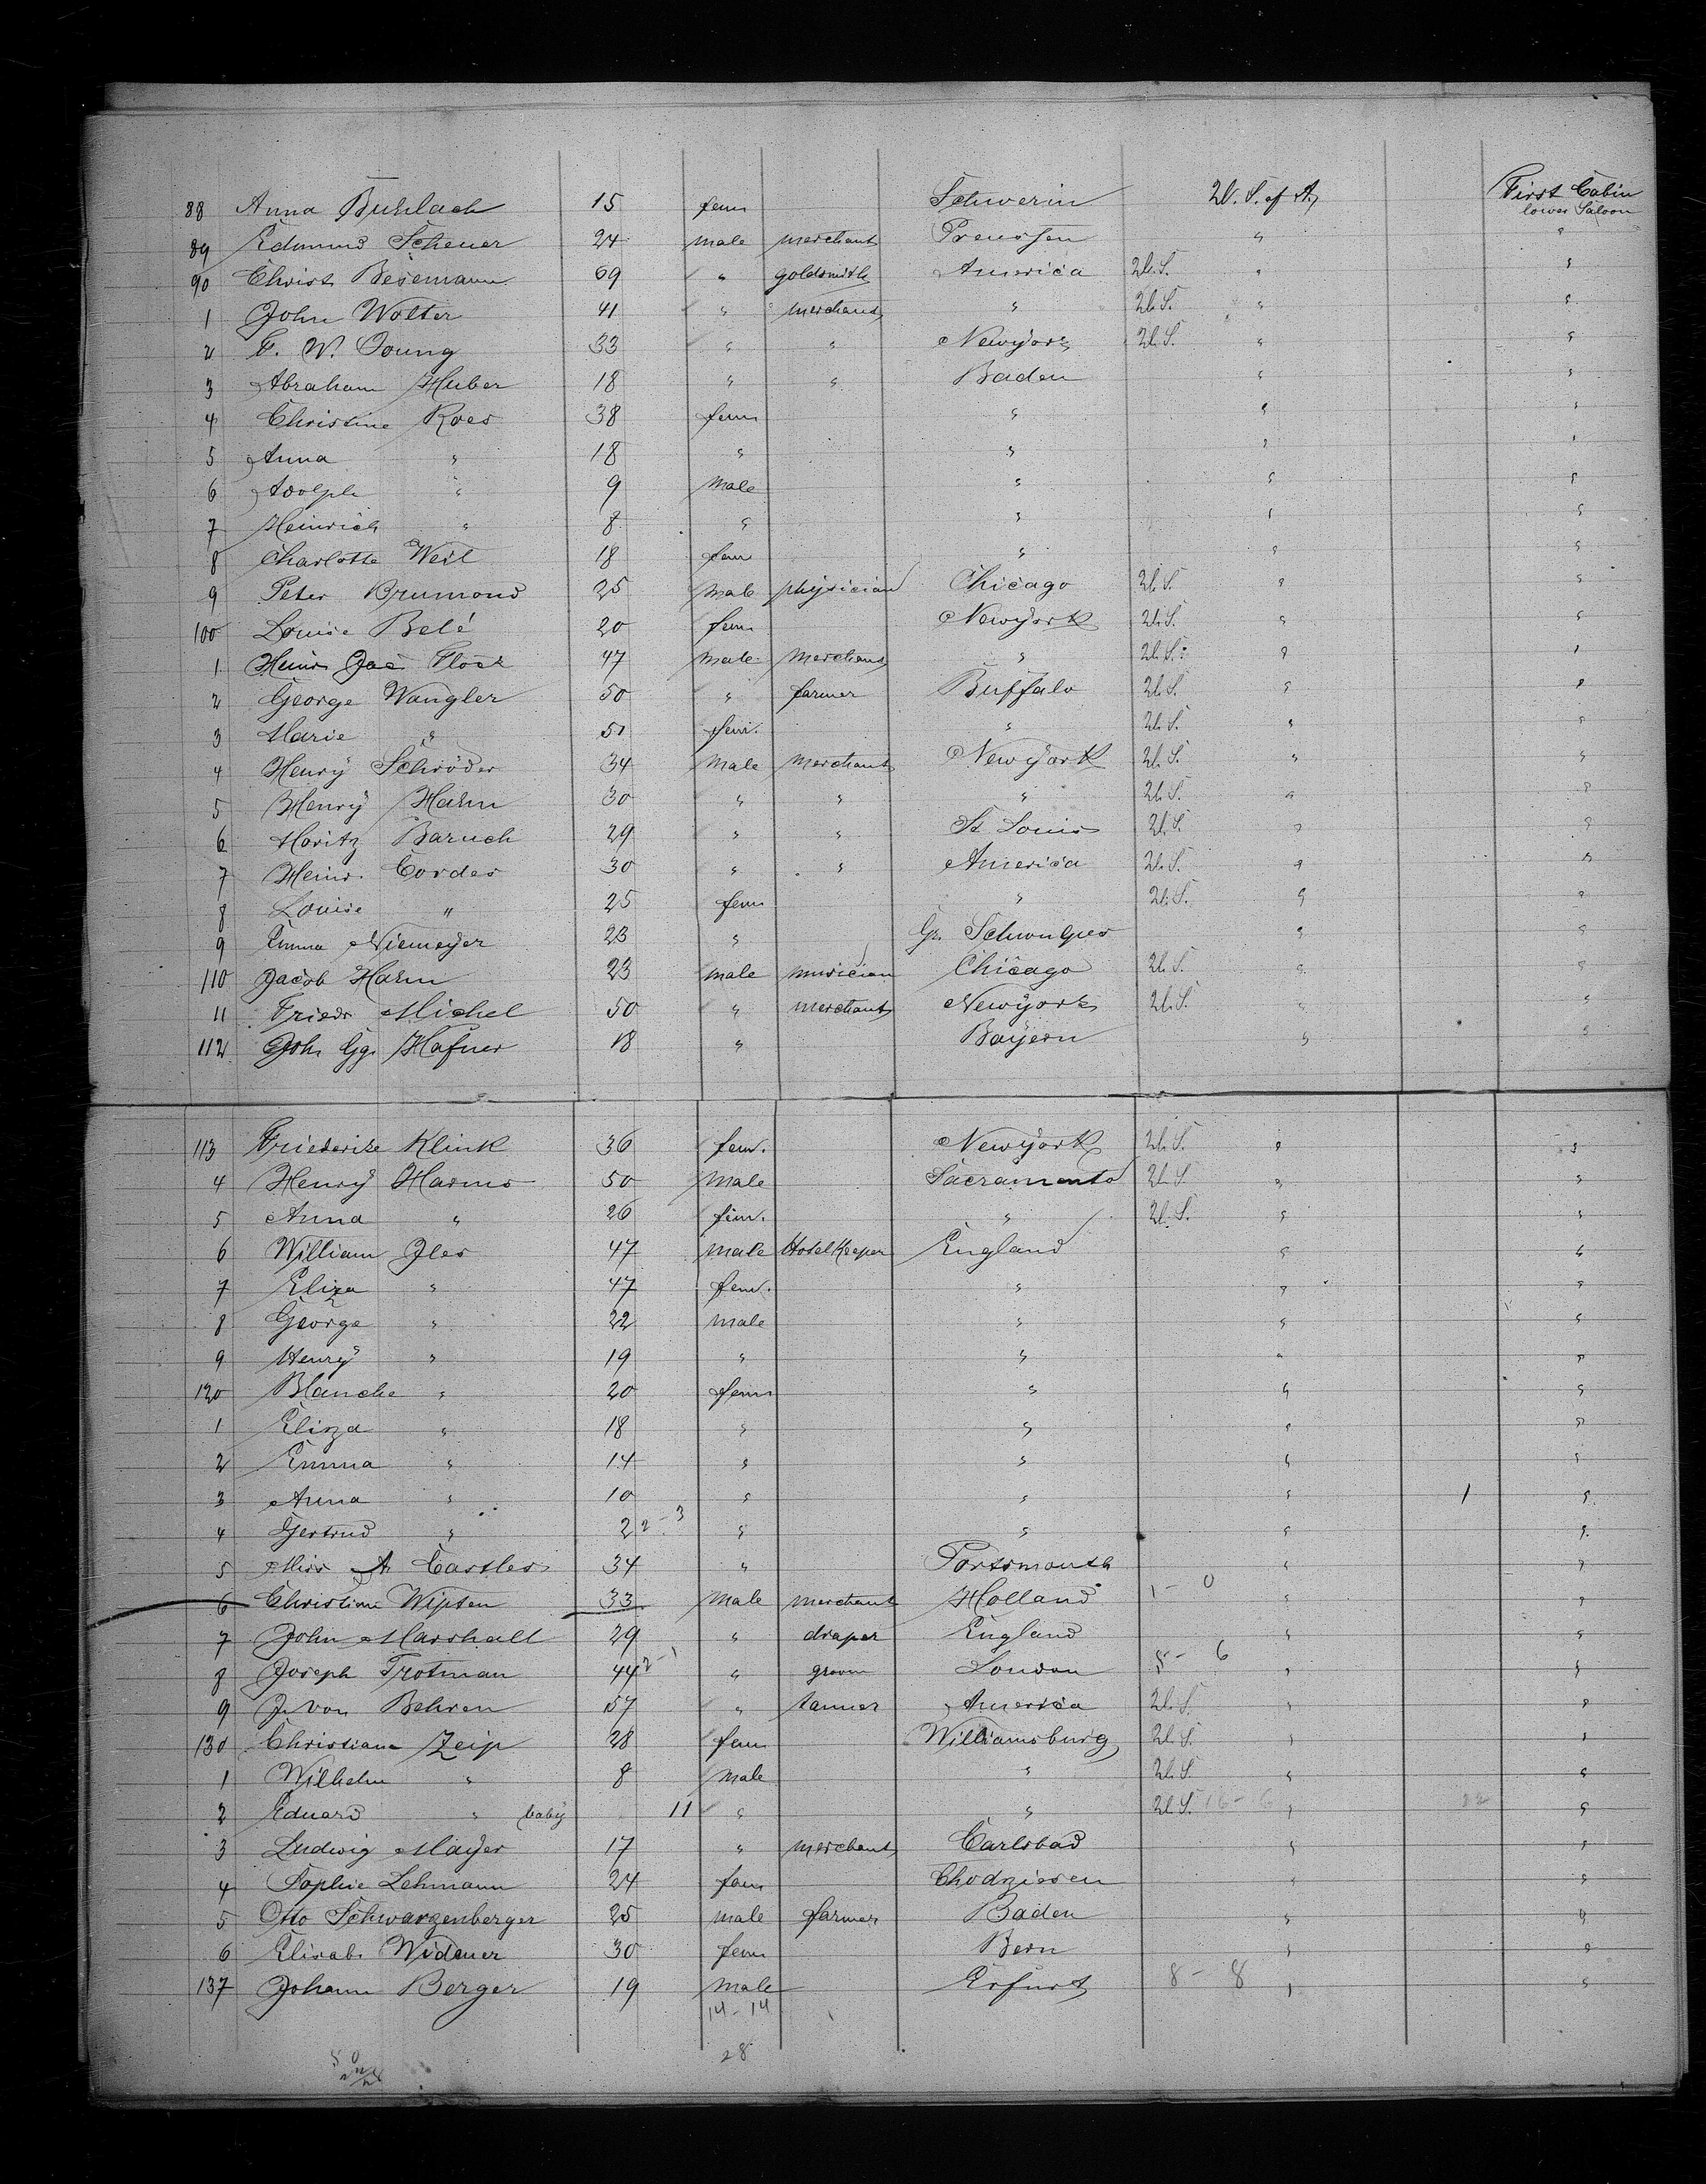 First Cabin
lower Saloon
88 Anna 15 fem Schwerin U. S. of A.
89 Edmund Scheuer 24 male merchant Preussen "
90 Christ. Besemann 69 " goldsmith America U.S. " "
1 John Wolter 41 " merchant " U.S. " "
2 F. W. Young 33 " " Newyork U.S. " "
3 Abraham Huber 18 " " Baden " "
4 Christine Roes 38 fem " " "
5 Anna " 18 " " " "
6 Adolph " 9 male " " "
7 Heinrich " 8 " " " "
8 Charlotte Weil 18 fem " " "
9 Peter Brumond 25 male physician Chicago U.S. " "
100 Louise Belé 20 fem Newyork U.S. " "
1 Heinr Jac 47 male merchant " U.S. " "
2 George Wangler 50 " farmer Buffalo U.S. " "
3 Marie " 51 fem. " U.S. " "
4 Henry Schröder 34 male merchant Newyork U.S. " "
5 Henry Hahn 30 " " " U.S. " "
6 Moritz Baruch 29 " " St Louis U.S. " "
7 Heinr. Cordes 30 " " America U.S. " "
8 Louise " 25 fem " U.S. " "
9 Emma Niemeyer 23 " Gr. " "
110 Jacob Hahn 23 male musician Chicago U.S. " "
11 Friedr Michel 50 " merchant Newyork U.S. " "
112 Joh. Gg. Hafner 18 " Bayern " "
113 Friederike Klink 36 fem. Newyork U.S. " "
4 Henry Harms 50 male Sacramento U.S. " "
5 Anna " 26 fem. " U.S. " "
6 William Iles 47 male Hotelkeeper England " "
7 Eliza " 47 fem. " " "
8 George " 22 male " " "
9 Henry " 19 " " " "
120 Blanche " 20 fem " " "
1 Eliza " 18 " " " "
2 Emma " 14 " " " "
3 Anna " 10 " " " 1 "
4 Gertrud " 2 2-3 " " " "
5 Miss A Castles 34 " Portsmouth " "
6 Christian 33 male merchant Holland 1-0 " "
7 John Marshall 29 " draper England " "
8 Joseph Trotman 44 2-1 " groom London 5-6 " "
9 J. von Behren 57 " tanner America U.S. " "
130 Christiane Zeip 28 fem Williamsburg U.S. " "
1 Wilhelm " 8 male " U.S. " "
2 Eduard " baby 11 " " U.S. 16-6 " 22 "
3 Ludwig Mayer 17 " merchant Carlsbad " "
4 Sophie Lehmann 24 fem Chodziesen " "
5 Otto Schwarzenberger 25 male farmer Baden " "
6 Elisab. Widmer 30 fem Bern " "
137 Johann Berger 19 male Erfurt 8-8 " "
14-14
28